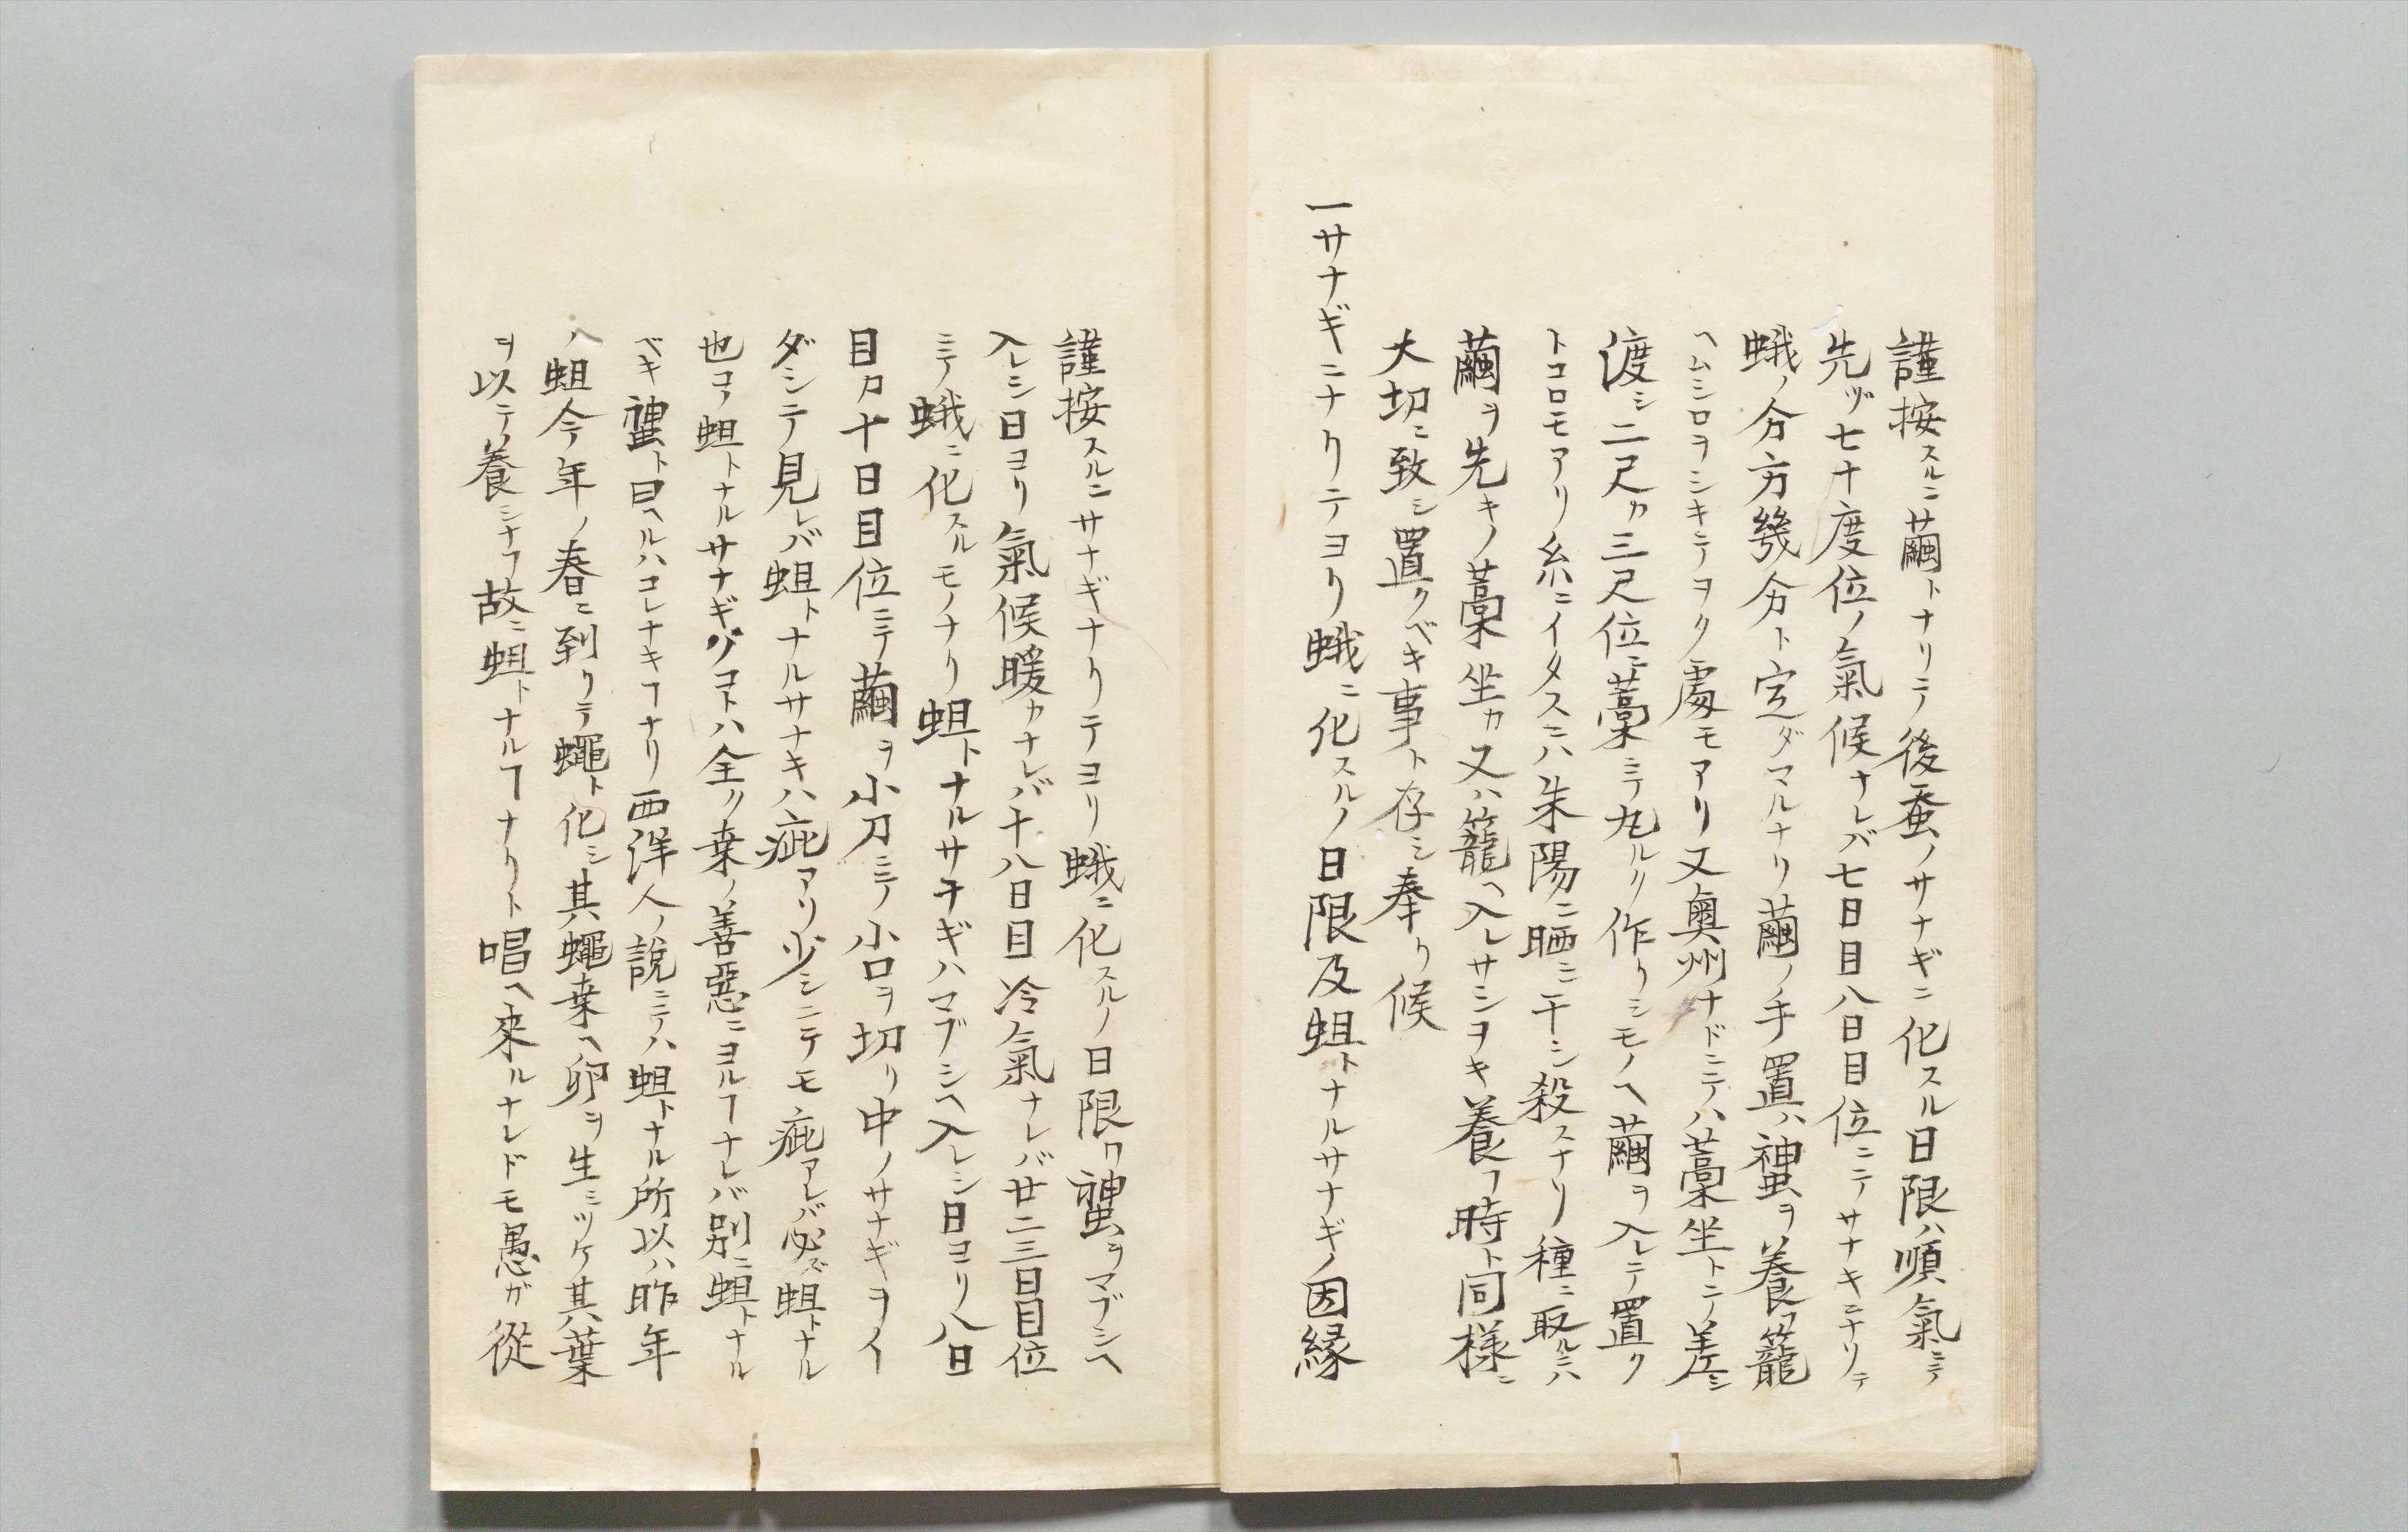 謹按スルニ繭トナリテ後蚕ノサナギニ化スル日限ハ順氣ニテ
先ヅ七十度位ノ氣候ナレバ七日目八日目位ニテサナキニナリテ
蛾ノ分方幾分ト定ダマルナリ繭ノ手置ハ蚕ヲ養フ籠
ヘムシロヲシキテヲク處モアリ又奥州ナドニテハ藁坐トニテ差シ
渡シ二尺カ三尺位ニ藁ニテ丸ルク作クリシモノヘ繭ヲ入レテ置ク
トコロモアリ糸ニイタスニハ朱陽ニ晒ニ干シ殺スナリ種ニ取ルニハ
繭ヲ先キノ藁坐カ又ハ籠ヘ入レサシヲキ養フ時ト同様ニ
大切ニ致シ置クベキ事ト存シ奉リ候
一サナギニナクリテヨリ蛾ニ化スルノ日限及蛆トナルサナギノ因縁
謹按スルニサナギナクリテヨリ蛾ニ化スルノ日限ワ蚕ヲマブシヘ
入レシ日ヨリ氣候暖カナレバ十八日目冷氣ナレバ廿二三日目位
ニテ蛾ニ化スルモノナリ蛆トナルサナギハマブシヘ入レシ日ヨリ八日
目カ十日目位ニテ繭ヲ小刀ニテ小口ヲ切リ中ノサナギヲイ
ダシテ見レバ蛆トナルサナキハ疵アリ少シニテモ疵アレバ必ズ蛆トナル
也コノ蛆トナルサナギヅコトハ全ク桒ノ善惡ニヨルヿナレバ別ニ蛆トナル
ベキ蚕ト曰ヘルハコレナキヿナリ西洋人ノ説ニテハ蛆トナル所以ハ昨年
ノ蛆今年ノ春ニ到リテ蠅ト化シ其蠅桒ヘ卵ヲ生ミツケ其葉
ヲ以テ養シナフ故ニ蛆トナルヿナクリト唱ヘ來ルナレドモ愚ガ從